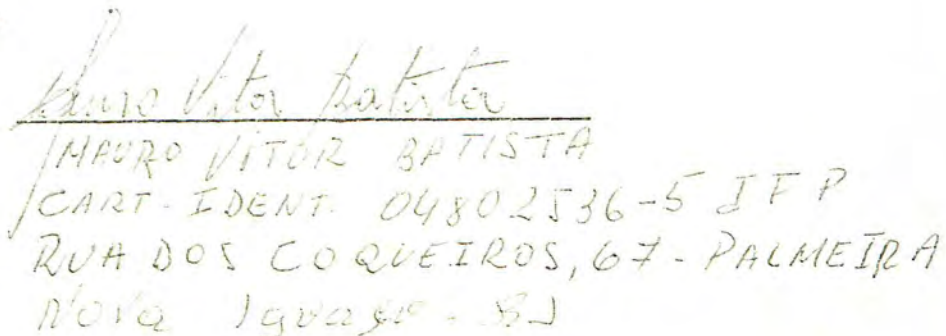 Mauro Vitor Batista
MAURO VITOR BATISTA
CART-IDENT. 04802536-5 IFP
RUA DOS COQUEIROS, 67 - PALMEIRA
Nova Iguaçu - RJ